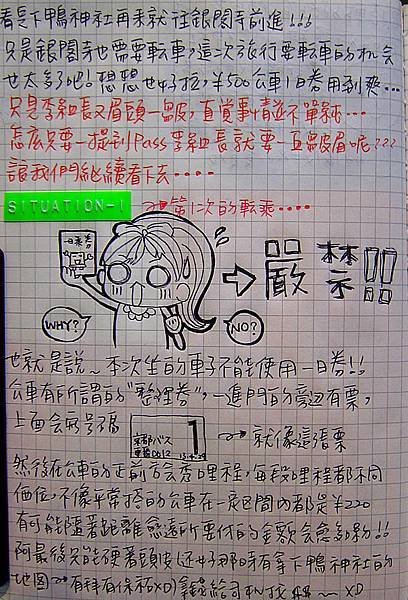 看完下鴨神社再來就往銀閣寺前進!!!
只是銀閣寺也需要転車,這次旅行要転車的机会
也太多了吧!想想也好拉,¥500公車1日券用到爽...
只見李組長又眉頭一皺,直覺事情並不單純...
怎么只要一提到Pass李組長就要一直皺眉呢???
讓我們繼續看下去....
SITUATION-1 第1次的転乘....
一日乘券
嚴禁!!
WHY? NO?
也就是說~本次坐的車子不能使用一日券!!
公車有所謂的"整理券",一進門的旁边有票,
上面会有号碼
京都バス 1
就像這張票
然後在公車的正前方会秀里程,每段里程都不同
價位,不像平常搭的公車在一定区間內都是¥220
有可能隨著距離愈遠所要付的金額会愈多約!!
阿最後只能硬著頭皮(还好那時有拿下鴨神社的
地圖→有拜有保祐XD)錢給司机找 ~ XD